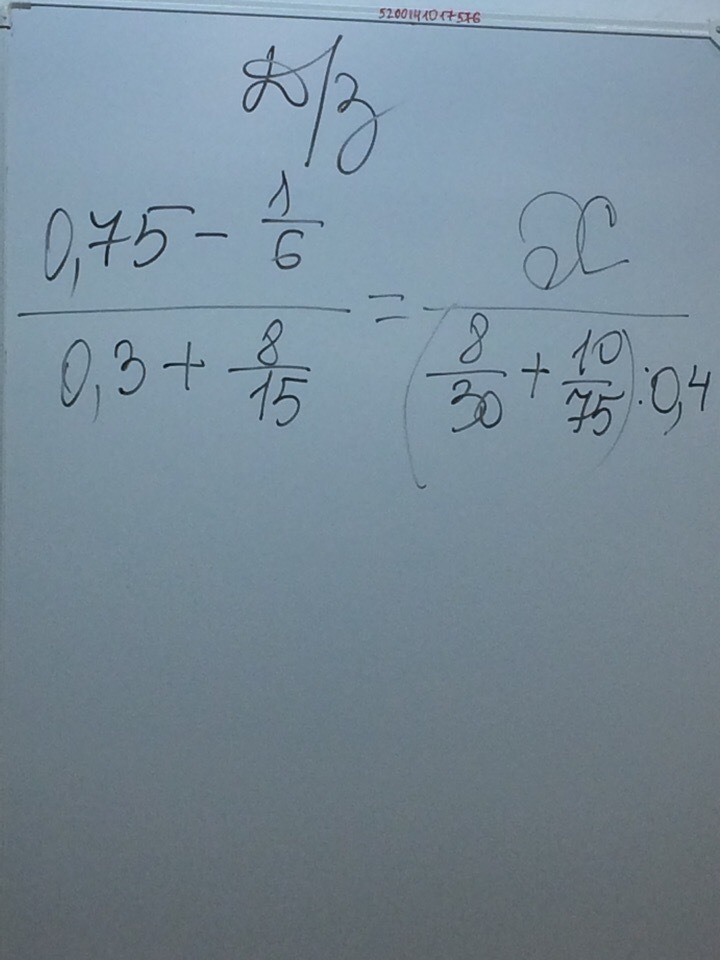 5200141017576
Д/з
0,75 - 1/6 / 0,3 + 8/15 = x / (8/30 + 10/75) : 0,4